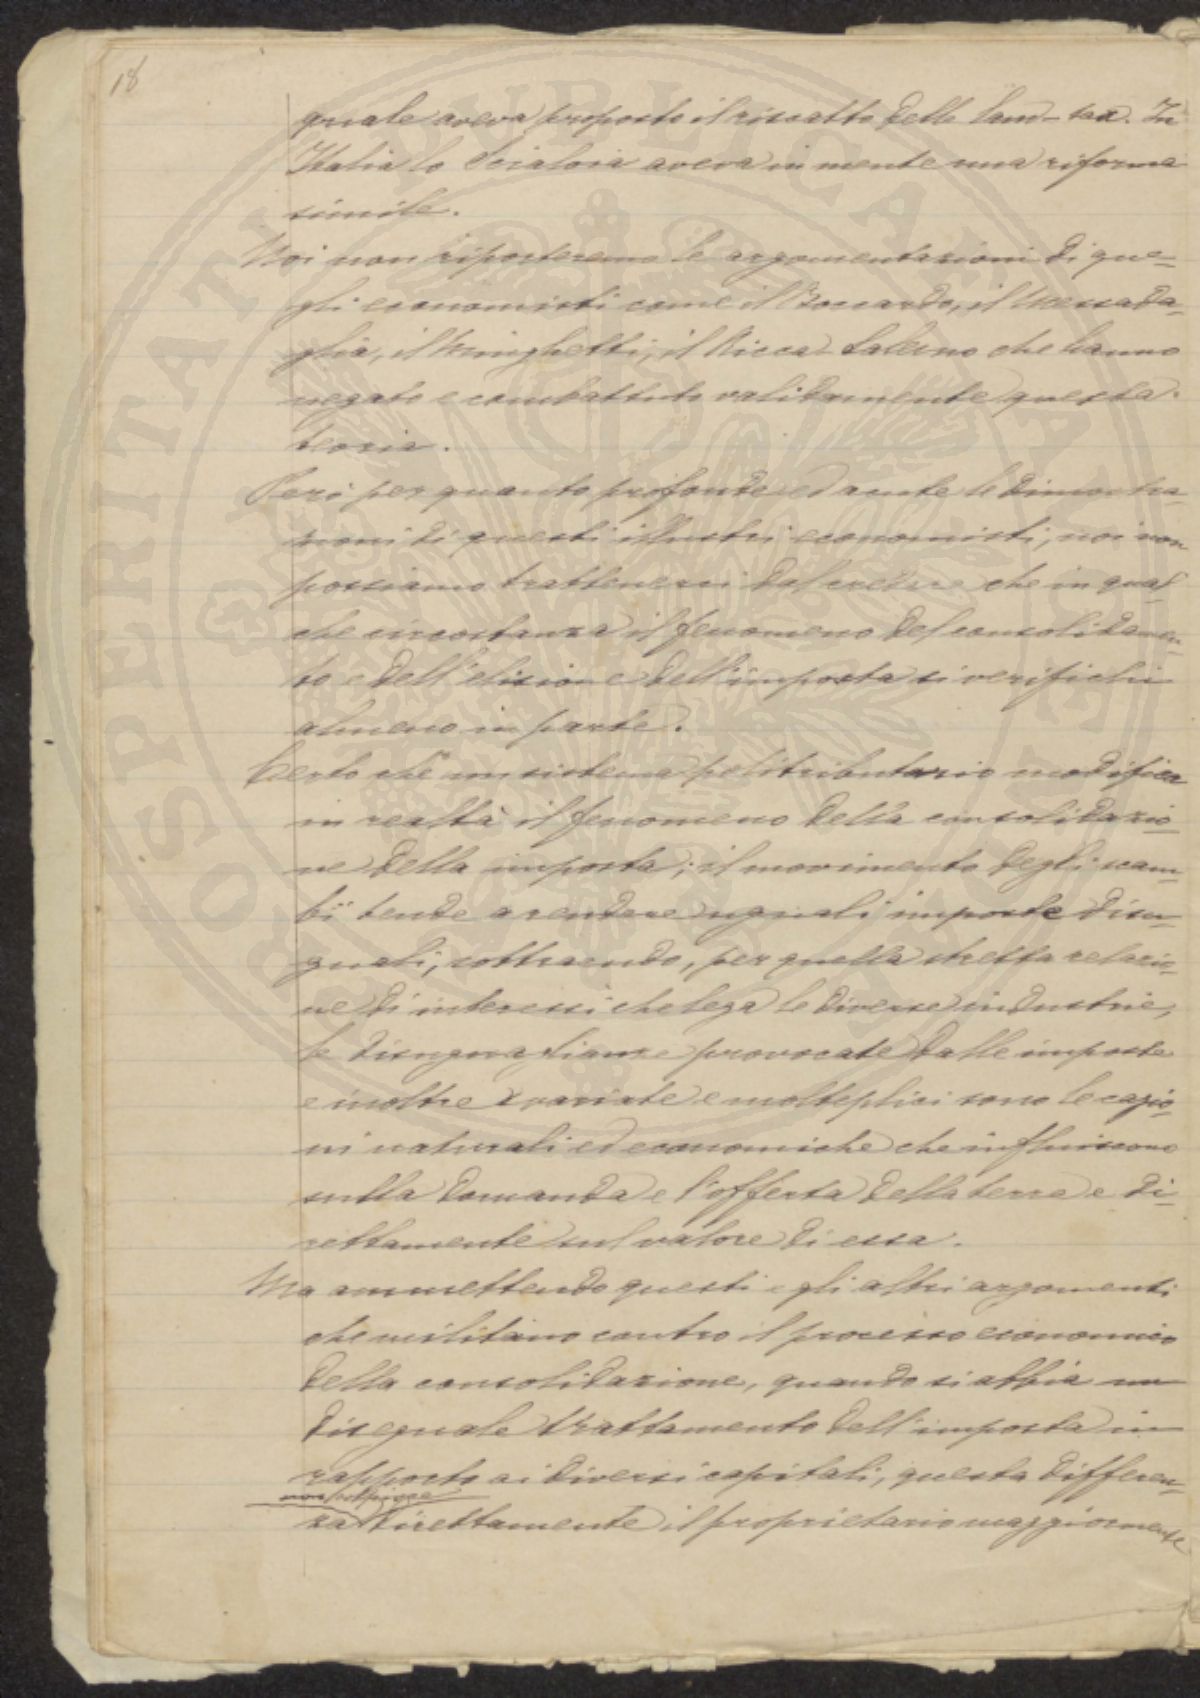 18
quale aveva proposto il riscatto della land-tax. In
Italia lo Scialoia aveva in mente una riforma
simile.
Noi non riporteremo le argomentazioni di que-
gli economisti come il Boccardo, il Messeda-
glia, il Minghetti, il Ricca-Salerno che hanno
negato e combattuto validamente questa
teoria.
Però per quanto profonde ed acute le dimostra-
zioni di questi illustri economisti, noi non
possiamo trattenerci dal credere che in qual-
che circostanza il fenomeno del consolidamen-
to e dell'elisione dell'imposta si verifichi
almeno in parte.
Certo che un sistema politributario modifica
in realtà il fenomeno della consolidazio-
ne della imposta; il movimento degli scam-
bî tende a rendere uguali imposte disu-
guali, sottraendo, per quella stretta relazio-
ne di interessi che lega le diverse industrie,
le disuguaglianze provocate dalle imposte
e inoltre svariate e molteplici sono le cagio-
ni naturali ed economiche che influiscono
sulla domanda e l'offerta della terra e di-
rettamente sul valore di essa.
Ma ammettendo questi e gli altri argomenti
che militano contro il processo economico
della consolidazione, quando si abbia un
diseguale trattamento dell'imposta in
rapporto ai diversi capitali, questa differen-
non colpisce
za direttamente il proprietario maggiormente